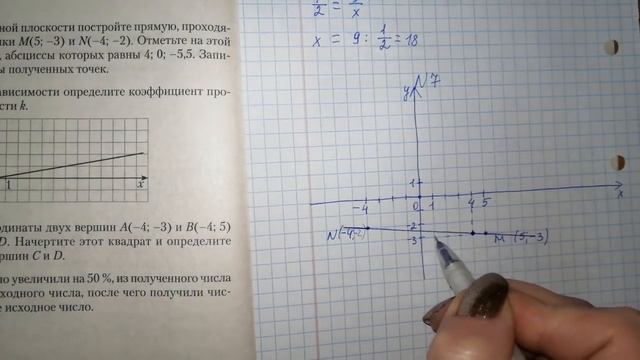 ной плоскости постройте прямую, проходя-
ки M(5; −3) и N(−4; −2). Отметьте на этой
, абсциссы которых равны 4; 0; −5,5. Запи-
ы полученных точек.
ависимости определите коэффициент про-
сти k.
1
x
рдинаты двух вершин A(−4; −3) и B(−4; 5)
D. Начертите этот квадрат и определите
ршин C и D.
но увеличили на 50 %, из полученного числа
ходного числа, после чего получили чис-
е исходное число.
x = 9 : 1/2 = 18
N7
y
1
x
−4
0
1
4 5
−2
−3
N(−4;−2)
M (5;−3)